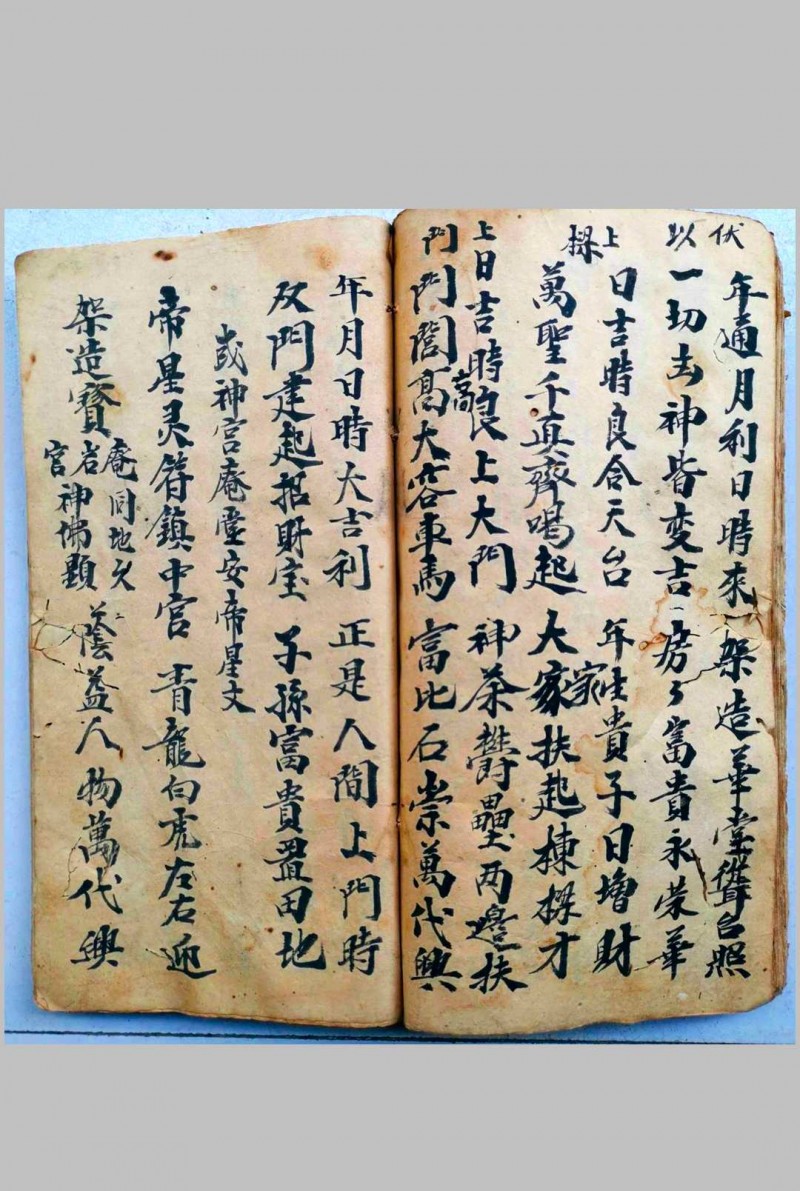 伏以
年通月利日時來 架造華堂聳台照
一切吉神皆变吉 房々富貴永荣華
上樑
日吉時良合天台 年家生貴子日增財
萬聖千真齊喝起 大家扶起棟樑才
上門
日吉時良上大門 神荼鬱壘两邉扶
門閭高高大容車馬 富比石崇萬代興
年月日時大吉利 正是人間上門時
双門建起招財宝 子孫富貴置田地
或神宫庵堂安帝星文
帝星灵符鎮中宫 青龍白虎左右迎
架造寳
庵同地久
岩神佛顕
官
蔭益人物萬代興